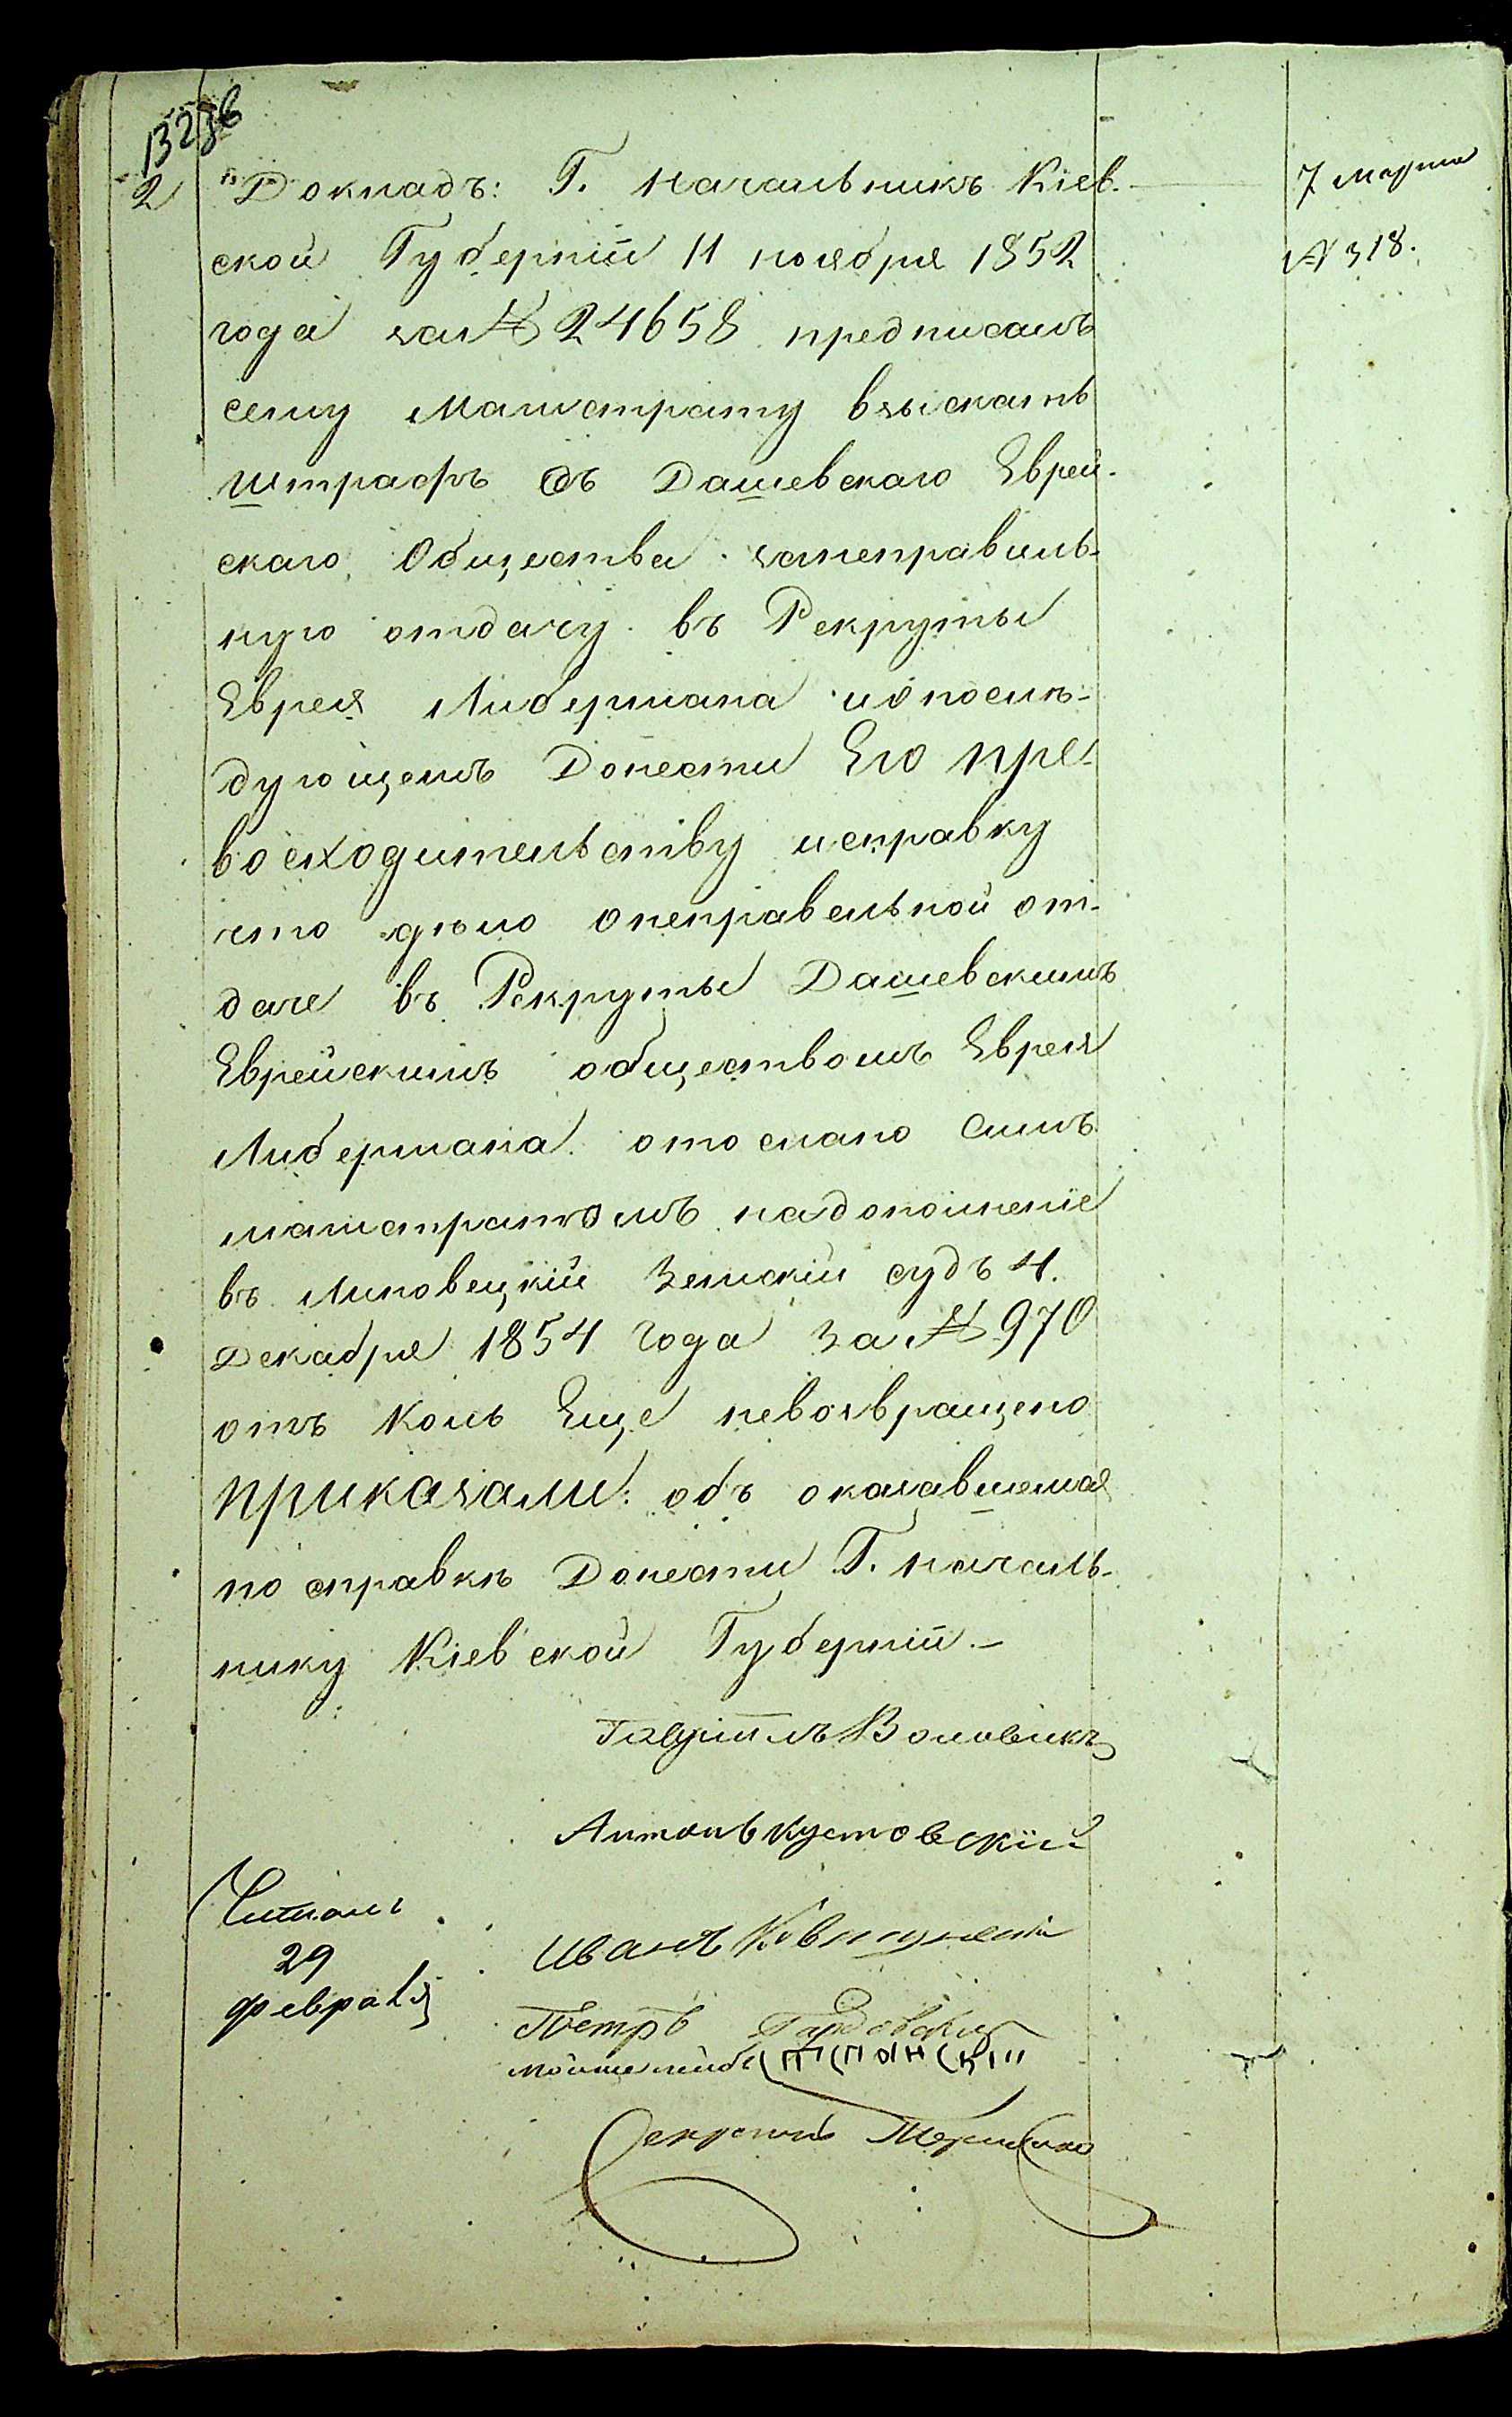 2
Докладъ: Г. начальникъ Кіев-
7 марта
ской Губерніи 11 ноября 1852
№ 318.
года за № 24658 предписалъ
сему Магистрату взыскать
штрафъ съ Дашевскаго Еврей-
скаго Общества занеправиль-
ную отдачу въ Рекруты
Еврея Либермана ио послѣ-
дующемъ Донести Его Пре-
восходительству исправку
что дѣло онеправельной от-
даче въ Рекруты Дашевскимъ
Еврейскимъ обществомъ Еврея
Либермана отослано симъ
магистратомъ надополненіе
въ Липовецкій Земскій судъ 4.
Декабря 1854 года за № 970
отъ коль Еще невозвращено
приказали: объ оказавшемся
по справкѣ Донести Г. началь-
нику Кіевской Губерніи.—
Гавріилъ Воловикъ
Антонъ Кустовскій
Читалъ
Иванъ
29
февраля
Петръ
Секретарь